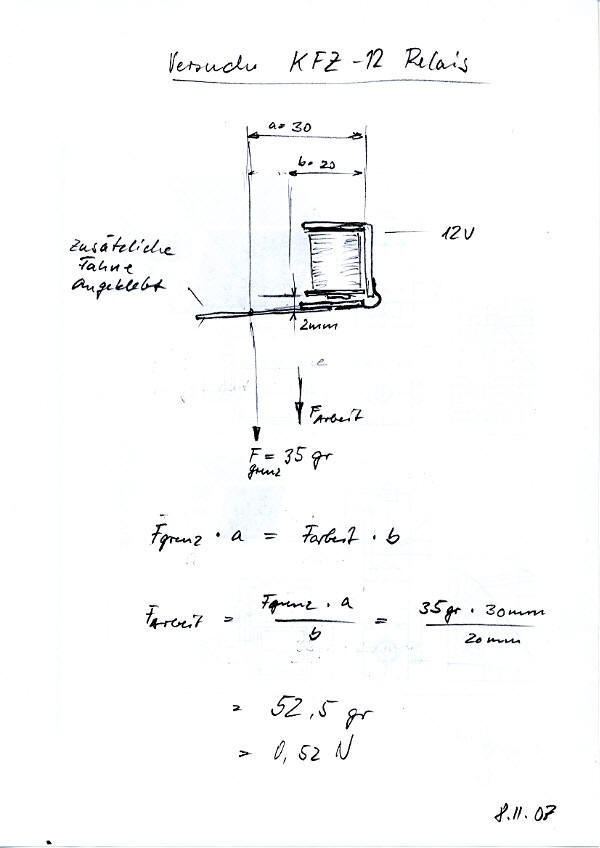 Versuche KFZ-12 Relais
a= 30
b= 20
12V
Zusätzliche
Fahne
angeklebt
2mm
e
F Arbeit
F = 35 gr
grenz
Fgrenz · a = Farbeit · b
FArbeit = Fgrenz · a / b = 35gr · 30mm / 20mm
= 52,5 gr
= 0,52 N
8.11.07